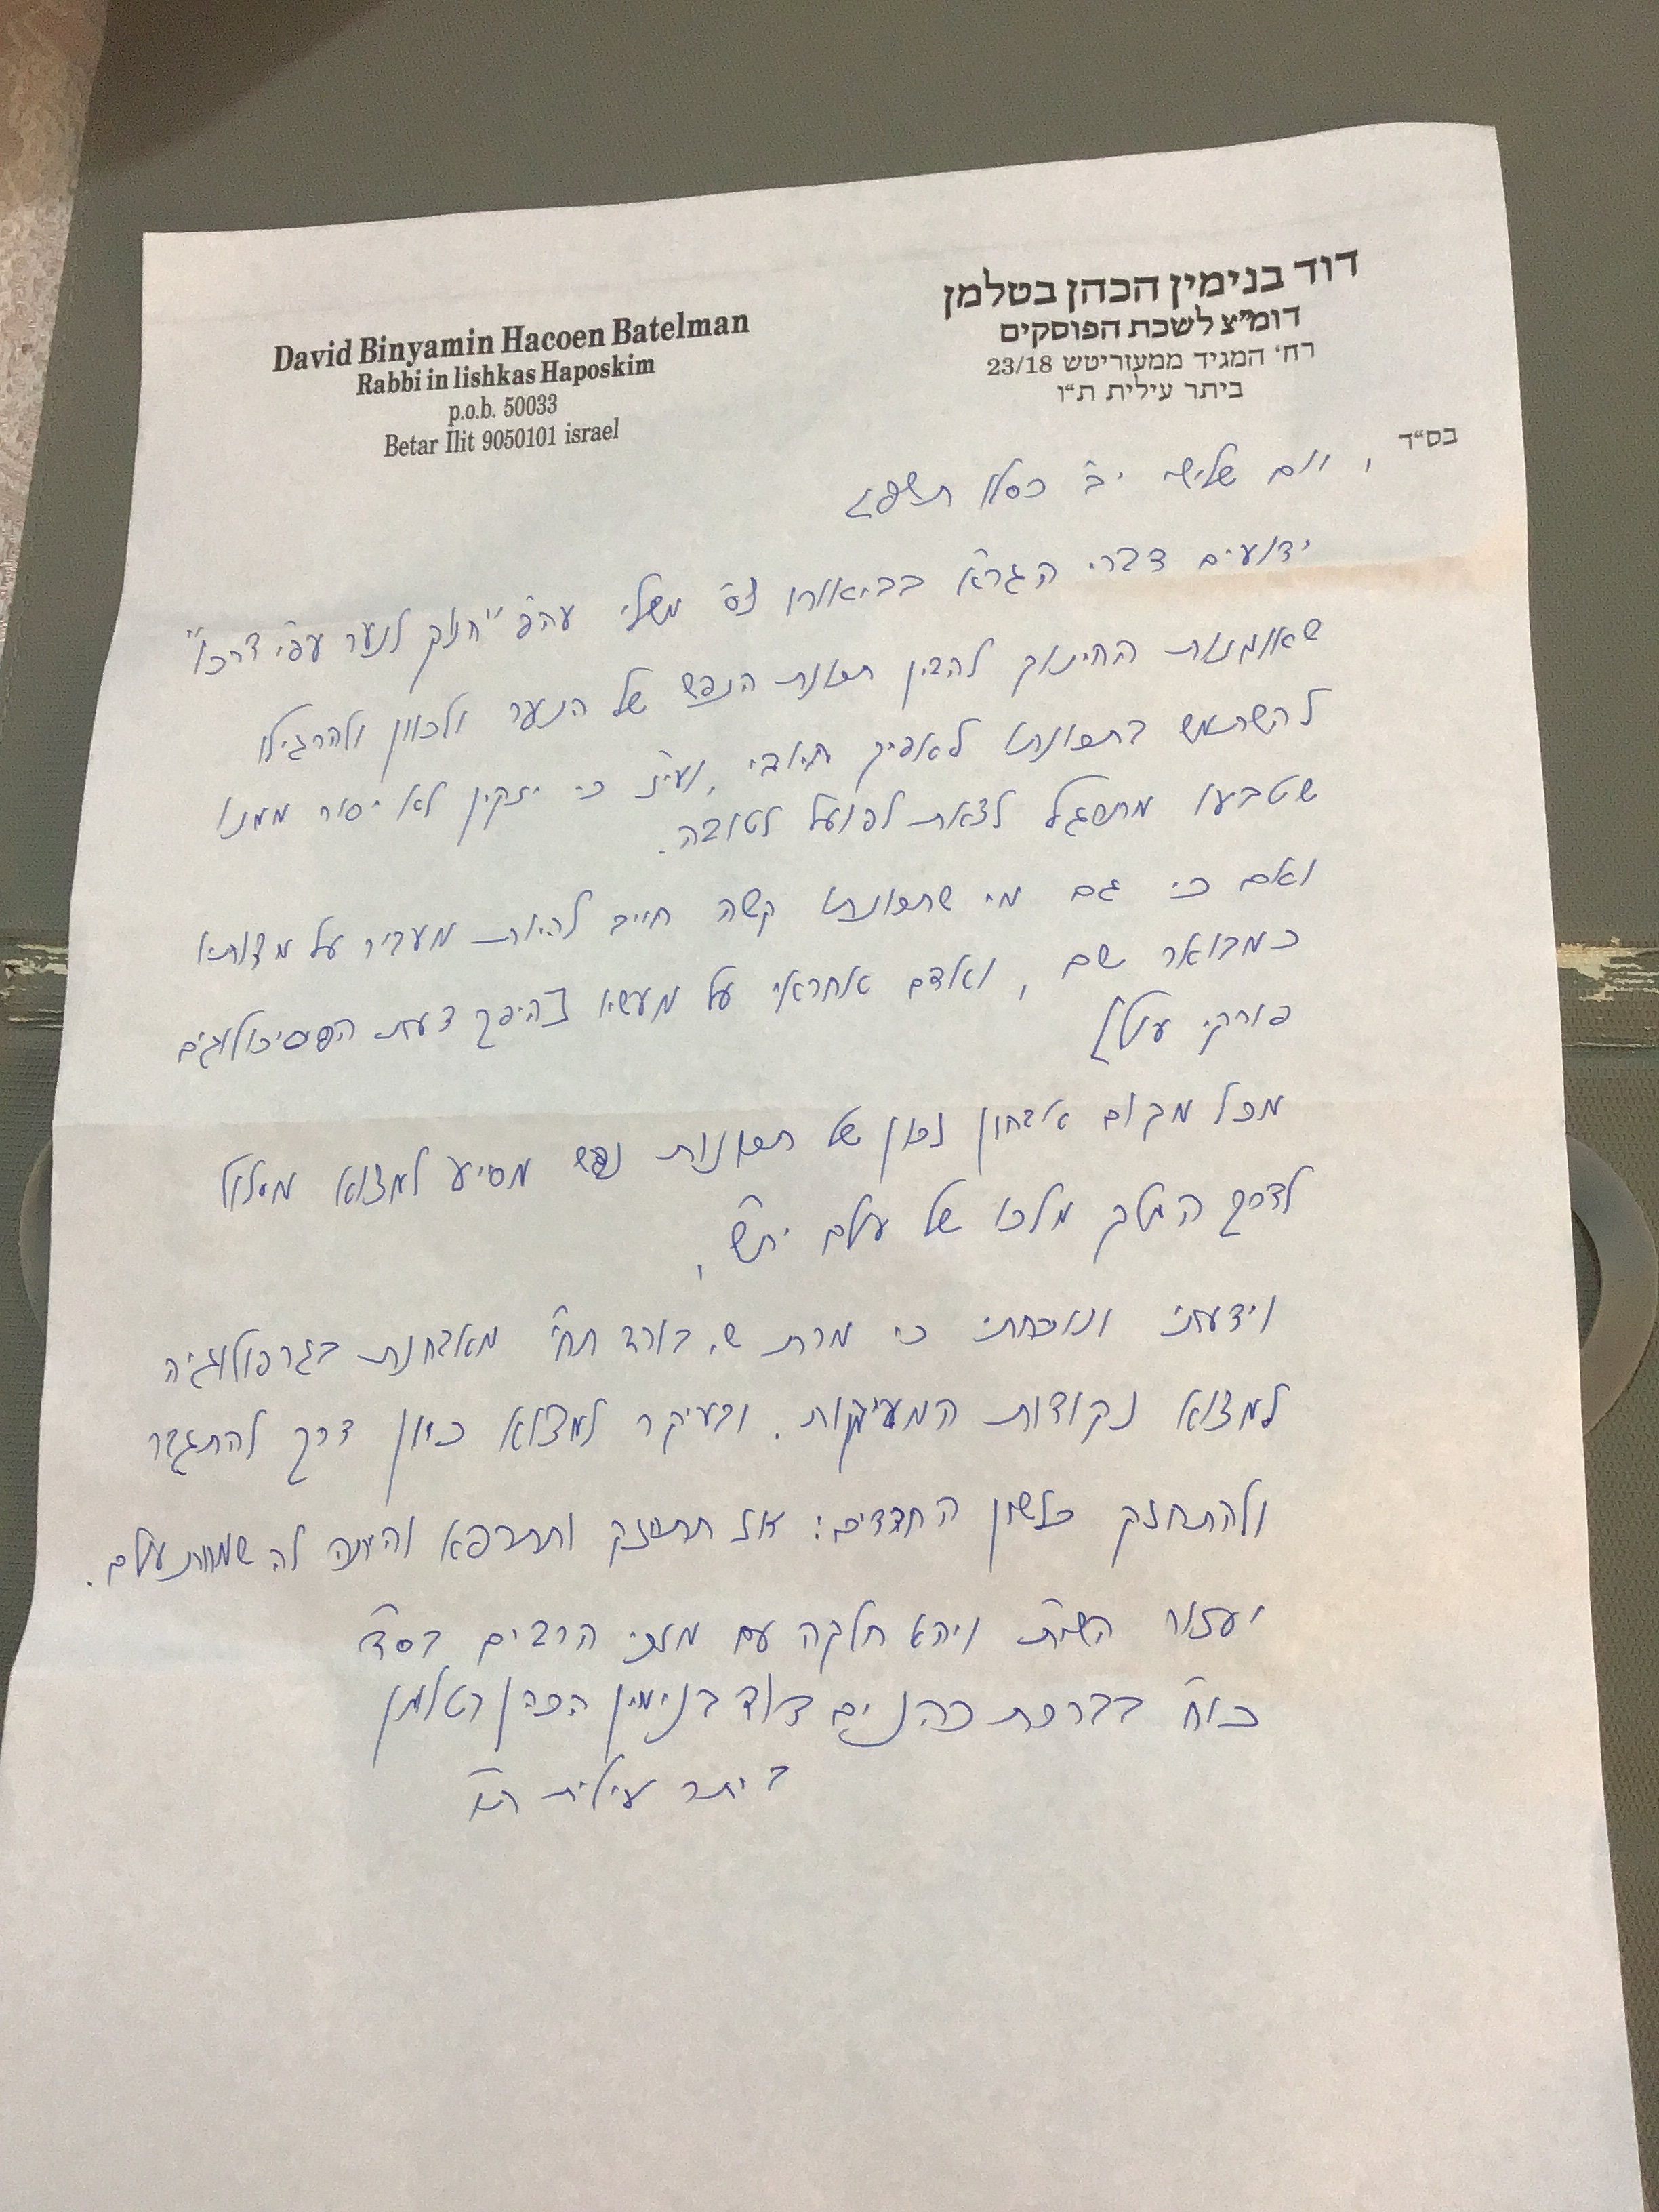 דוד בנימין הכהן בטלמן
דומ"צ לשכת הפוסקים
רח' המגיד ממעזריטש 23/18
ביתר עילית ת"ו
David Binyamin Hacoen Batelman
Rabbi in lishkas Haposkim
p.o.b. 50033
Betar Ilit 9050101 israel
בס"ד
, יום שלישי י"ב כסלו תשפ"ג
ידועים דברי הגר"א בביאורו משלי עה"פ "חנוך לנער עפ"י דרכו"
שאומנות החינוך להבין תכונת הנפש של הנער ולכוון ולהרגילו
להשתמש בתכונתו לאפיק חיובי, ועי"ז כי יזקין לא יסור ממנו
שטבעו מתפגל לצאת לפועל לטובה.
ואם כי גם מי שתכונתו קשה חייב להיות מעביר על מדותיו
כמבואר שם, ואדם אחראי על מעשיו [היפך דעת הפסיכולוגים
פורקי עול]
מכל מקום איבחון נכון של תכונות נפש מסייע למצוא מסלול
לדרך המלך מלכו של עולם ית"ש,
וידעתי ונוכחתי כי מרת ש. בורד תחי' מאבחנת בגרפולוגיה
למצוא נקודות המעיקות. ובעיקר למצוא כיוון דרך להתגבר
ולהתחזק כלשון החרדים: אז תתחזק ותתרפא והיתה לה שמחת עולם.
יעזור השי"ת ויהא חלקה עם מזכי הרבים בס"ד
כו"ח בברכת כהנים דוד בנימין הכהן בטלמן
ביתר עילית ת"ו